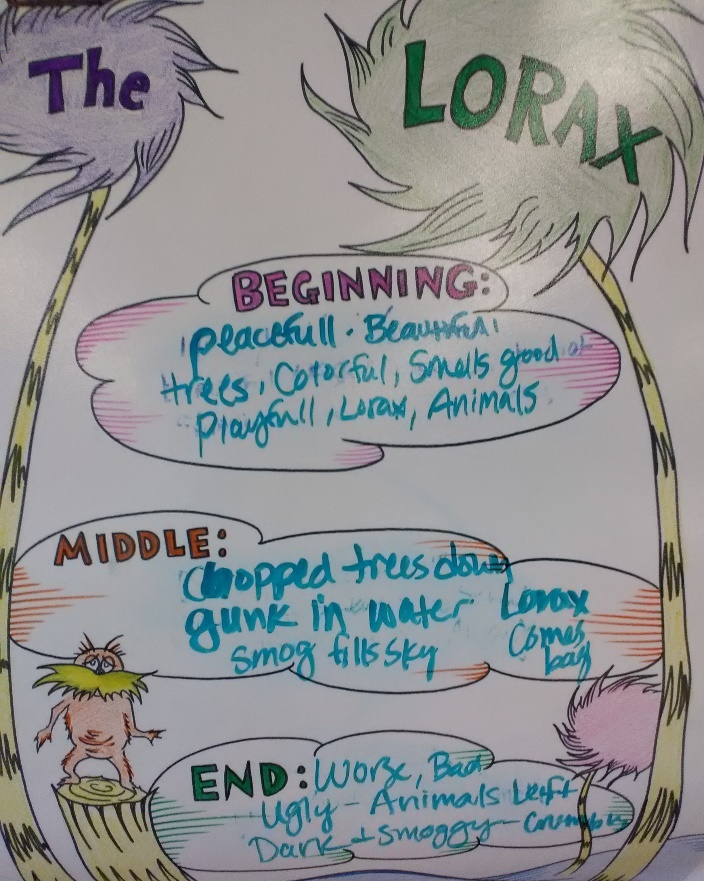 The LORAX
BEGINNING:
peacefull. Beautiful
trees, Colorful, Smells good
Playfull, Lorax, Animals
MIDDLE:
Chopped trees down
gunk in water
smog fills sky
Lorax
Comes
END: Worse, Bad
Ugly - Animals Left
Dark + smoggy -